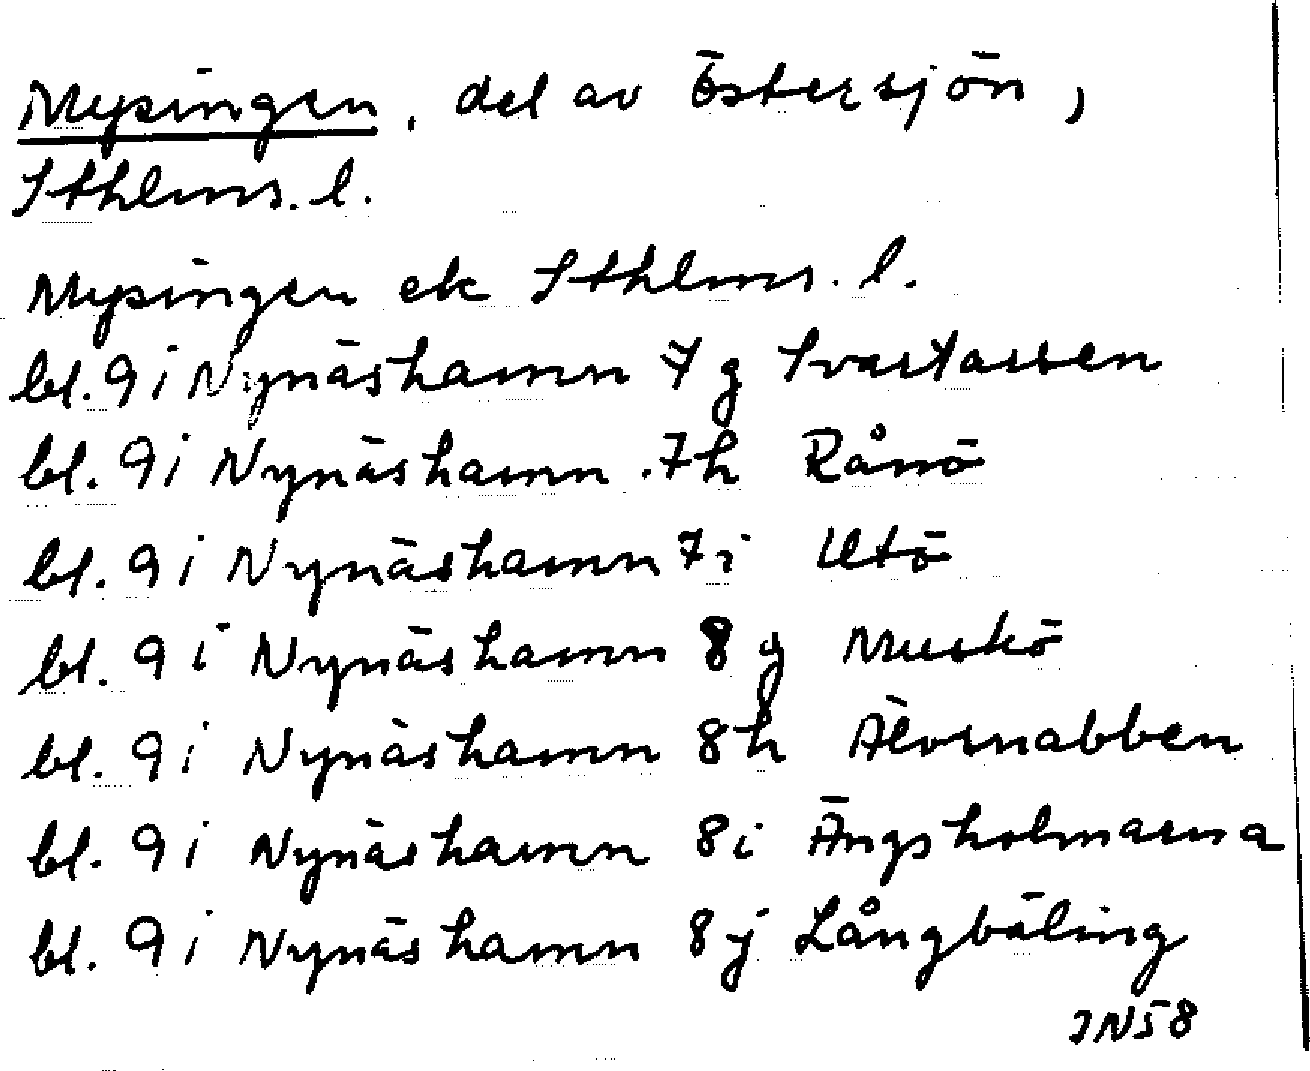 Mysingen, del av Östersjön,
Sthlms. l.
Mysingen ek Sthlms. l.
bl. 9 i Nynäshamn 7 g Svartarsen
bl. 9 i Nynäshamn 7h Rånö
bl. 9 i Nynäshamn 7i Utö
bl. 9 i Nynäshamn 8 g Muskö
bl. 9 i Nynäshamn 8h Älvsnabben
bl. 9 i Nynäshamn 8i Ängsholmarna
bl. 9 i Nynäshamn 8j Långbäling
JN58